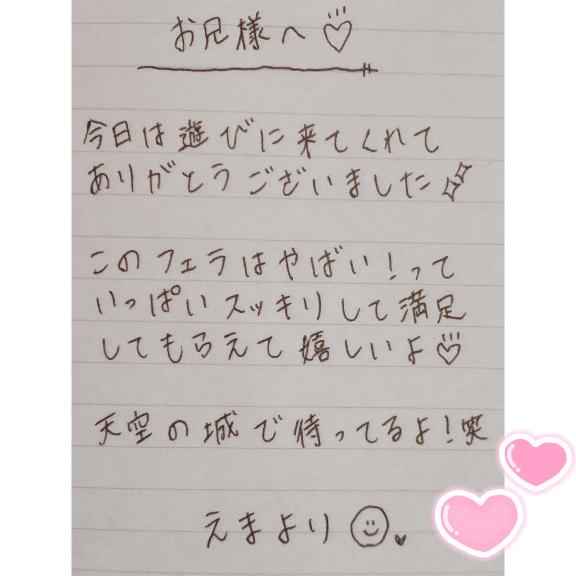 お兄様へ♡
今日は遊びに来てくれて
ありがとうございました✨
このフェラはやばい!って
いっぱいスッキリして満足
してもらえて嬉しいよ♡
天空の城で待ってるよ!笑
えまより☺♥